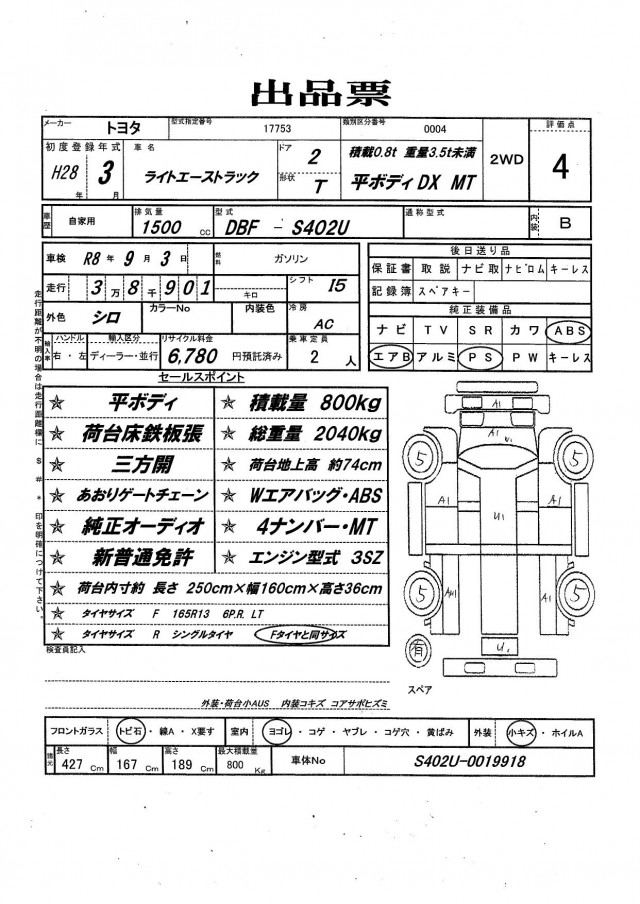 出品票
メーカー トヨタ 型式指定番号 17753 類別区分番号 0004 評価点
初度登録年式 車名 ドア 2 積載0.8t 重量3.5t未満 2WD 4
H28年 3月 ライトエーストラック 形状 T 平ボディDX MT
車歴 自家用 排気量 1500 cc 型式 DBF - S402U 通称型式 内装 B
車検 R8年 9月 3日 燃料 ガソリン 後日送り品
走行 3万8千901 キロ シフト I5 保証書 取説 ナビ取 ナビロム キーレス
記録簿 スペアキー
外色 シロ カラーNo 内装色 冷房 AC 純正装備品
ナビ TV SR カワ ABS
輸入車 ハンドル 右・左 輸入区分 ディーラー・並行 リサイクル料金 6,780 円預託済み 乗車定員 2 人 エアB アルミ PS PW キーレス
セールスポイント
☆ 平ボディ ☆ 積載量 800kg
☆ 荷台床鉄板張 ☆ 総重量 2040kg
☆ 三方開 ☆ 荷台地上高 約74cm
☆ あおりゲートチェーン ☆ Wエアバッグ・ABS
☆ 純正オーディオ ☆ 4ナンバー・MT
☆ 新普通免許 ☆ エンジン型式 3SZ
☆ 荷台内寸約 長さ 250cm×幅160cm×高さ36cm
☆ タイヤサイズ F 165R13 6P.R. LT
☆ タイヤサイズ R シングルタイヤ Fタイヤと同サイズ
検査員記入
走行距離が不明の場合は走行距離欄に $ # * 印を明確につけて下さい。
A1
U1
5 5
A1 U1 A1
5 A1 5
有 U1
スペア
外装・荷台小AUS 内装コキズ コアサポヒズミ
フロントガラス トビ石・線A・X要す 室内 ヨゴレ・コゲ・ヤブレ・コゲ穴・黄ばみ 外装 小キズ・ホイルA
諸元 長さ 427 Cm 幅 167 Cm 高さ 189 Cm 最大積載量 800 Kg 車体No S402U-0019918